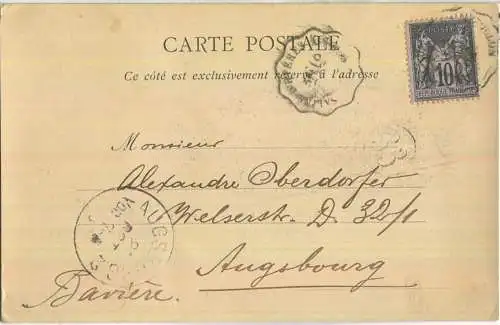 CARTE POSTALE
Ce côté est exclusivement réservé à l'adresse
POSTES
10
REPUBLIQUE FRANÇAISE
Monsieur
Alexandre Oberdorfer
Welserstr. D. 32/1
Augsbourg
Bavière.